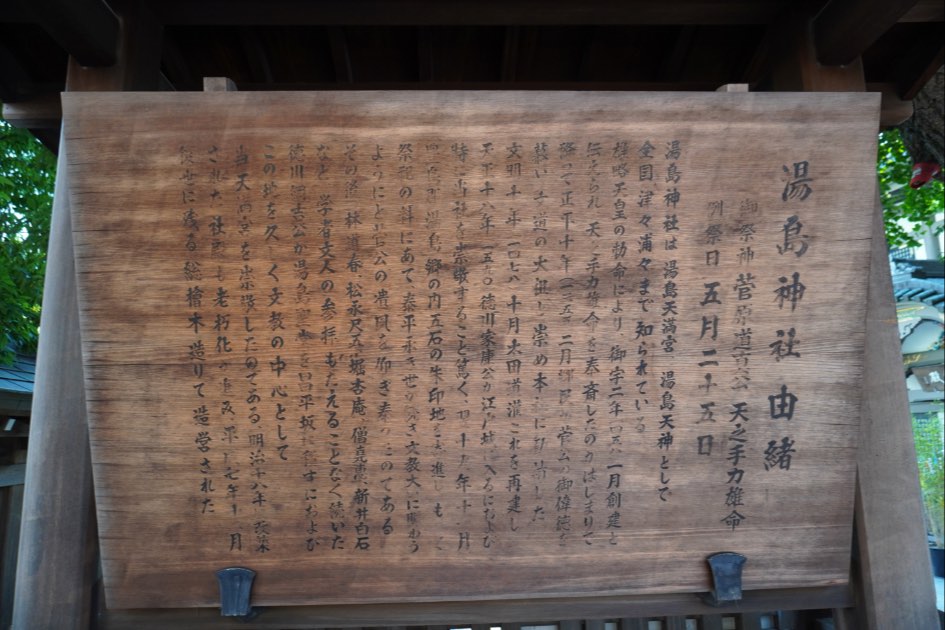 湯島神社由緒
御祭神 菅原道真公 天之手力雄命
例祭日 五月二十五日
湯島神社は 湯島天満宮 湯島天神として
全国津々浦々まで知られている
雄略天皇の勅命により 御宇二年 一月創建と
伝えられ 天之手力雄命を奉斎したのがはじまりで
降って正平十年 二月郷民が菅公の御偉徳を
慕い 文道の大祖と崇め本社に勧請した
文明十年 十月 太田道灌これを再建し
天正十八年 徳川家康公が江戸城に入るにおよび
特に当社を崇敬すること篤く 十一月
豊島郡湯島郷の内五石の朱印地を寄進し もって
祭祀の料にあて 泰平永き世が続き 文教大いに賑わう
ようにと菅公の遺風を仰ぎ奉ったのである
その後 林道春 松永尺五 堀杏庵 僧堯恵 新井白石
など 学者文人の参拝もたえることなく続いた
徳川綱吉公が湯島聖堂を昌平坂に移すにおよび
この地を久しく文教の中心として
当天満宮を崇敬したのである 明治十八年 改築
された社殿も老朽化 平成七年十二月
後世に残る総檜木造りで造営された